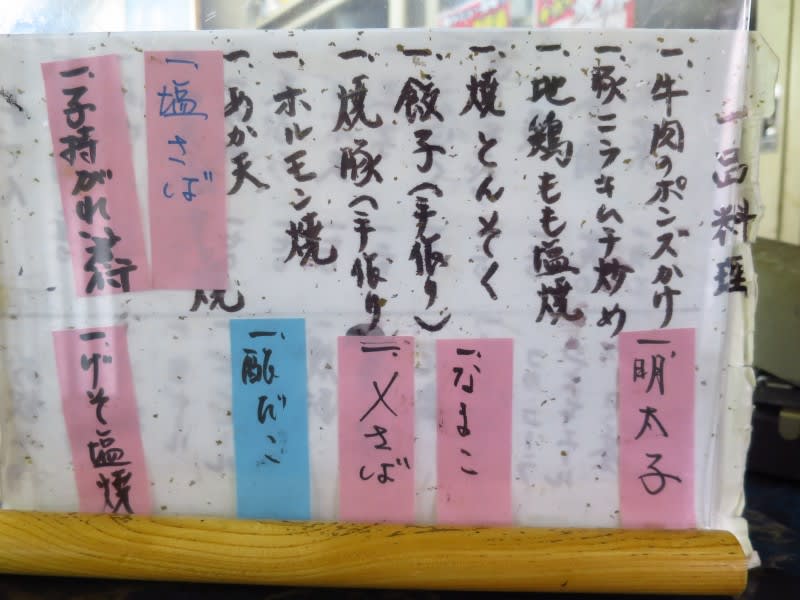 一品料理
一、牛肉のポンズかけ
一、豚ニラキムチ炒め
一、地鶏もも塩焼
一、焼とんそく
一、餃子(手作り)
一、焼豚(手作り
一、ホルモン焼
一、あか天
焼
一、塩さば
一、子持がれい
一、明太子
一、なまこ
一、〆さば
一、酢だこ
一、げそ塩焼